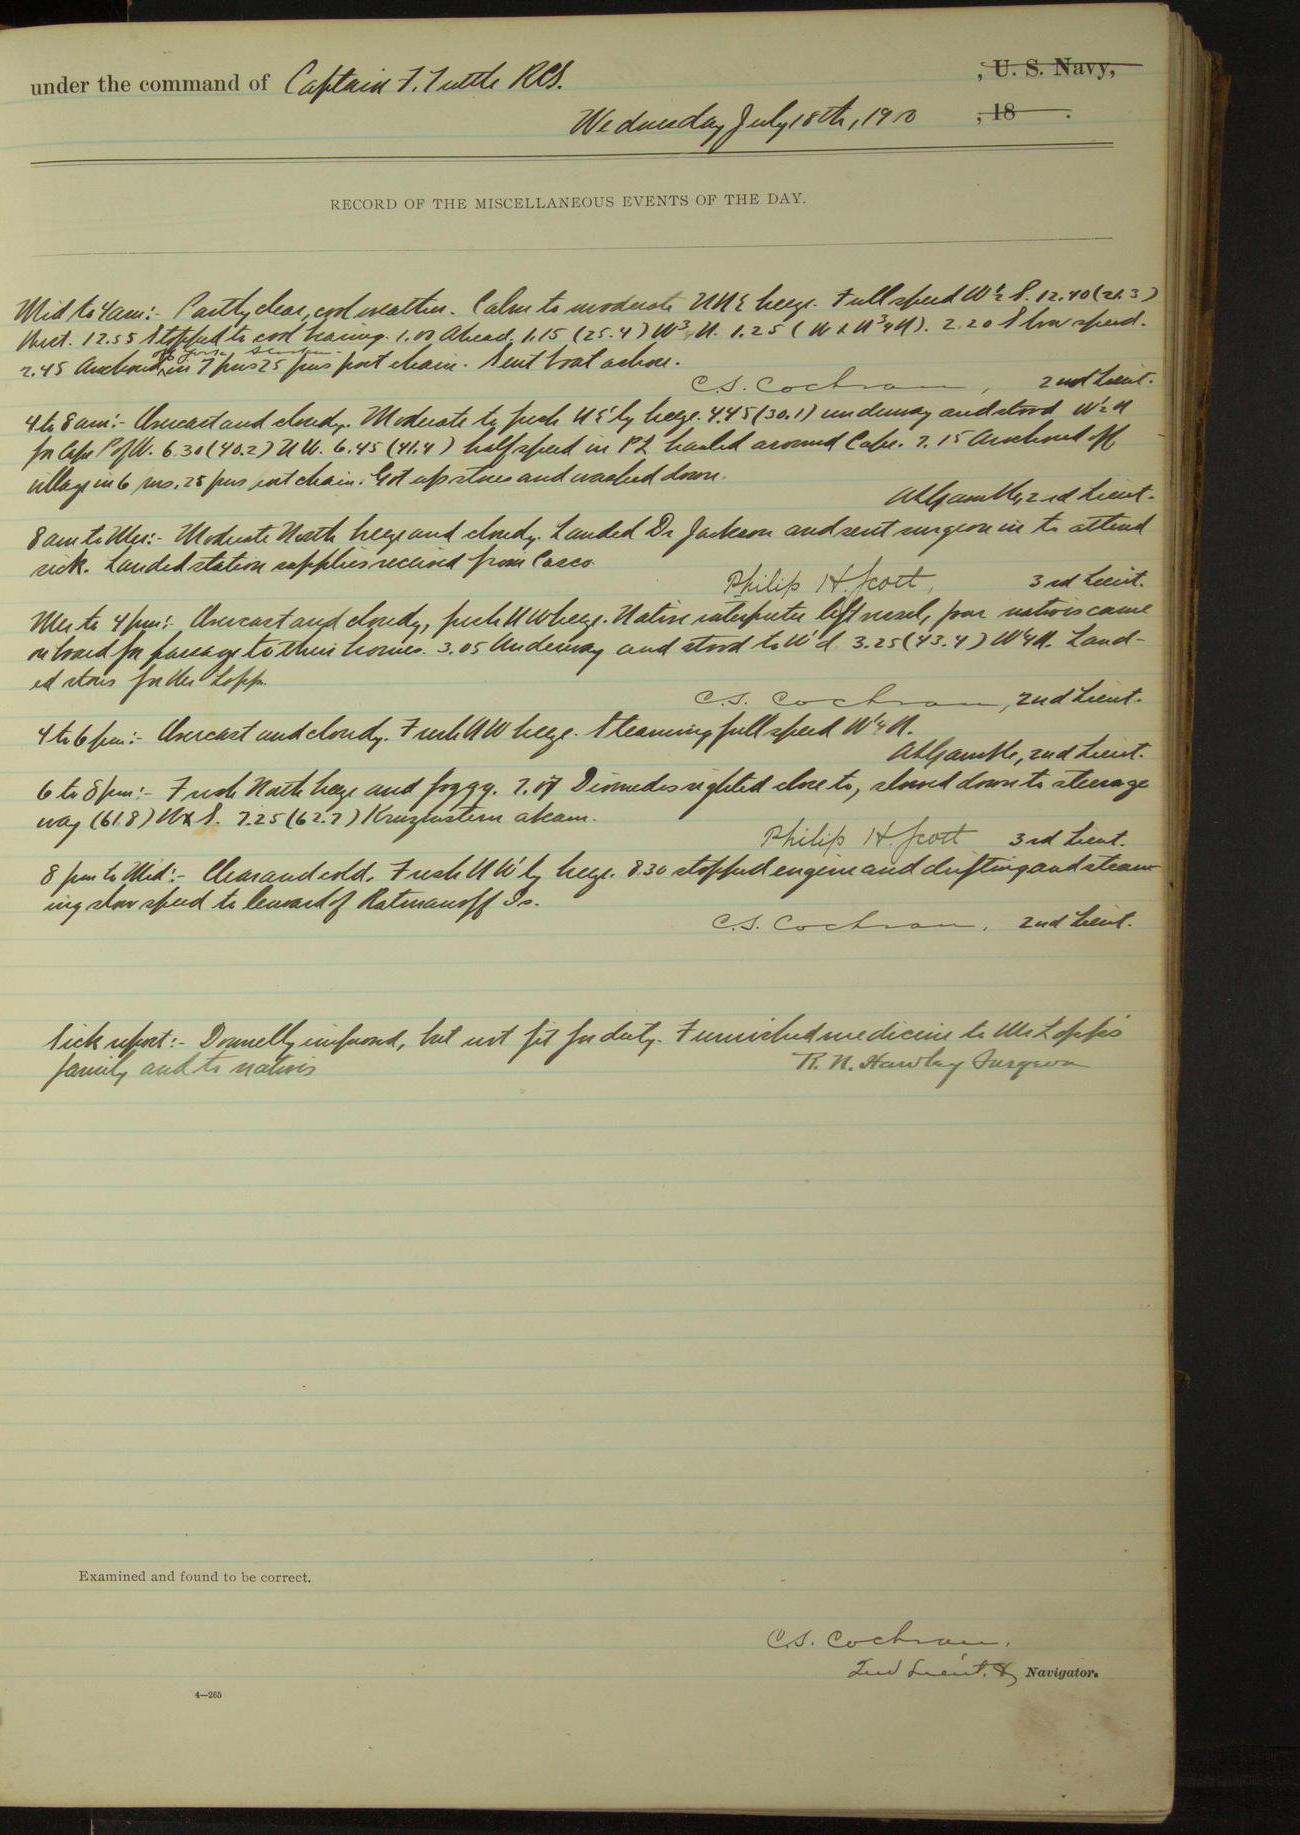 under the command of Captain F. Tuttle RCS. , U. S. Navy,
Wednesday July 18th, 190 , 18 .
RECORD OF THE MISCELLANEOUS EVENTS OF THE DAY.
Mid to 4am:- Partly clear, cool weather. Calm to moderate NNE breeze. Full speed W½S. 12.40 (21.3)
West. 12.55 Stopped to cool bearing. 1.00 Ahead. 1.15 (25.4) W¾N. 1.25 ( ). 2.20 Slow speed.
2.45 Anchored in 7 fms 25 fms port chain. Sent boat ashore.
C.S. Cochran, 2nd Lieut.
4 to 8am:- Overcast and cloudy. Moderate to fresh N'ly breeze. 4.45 (30.1) underway and stood W½N
for Cape P of W. 6.30 (40.2) NW. 6.45 (41.4) half speed in hauled around Cape. 7.15 Anchored off
village in 6 fms. 25 fms port chain. Got up stores and washed down.
Gamble, 2nd Lieut.
8am to Mer:- Moderate North breeze and cloudy. Landed Dr Jackson and sent surgeon in to attend
sick. Landed station supplies received from Casco.
Philip H. Scott, 3rd Lieut.
Mer to 4pm:- Overcast and cloudy, fresh NW breeze. Native interpreter left vessel, four natives came
on board for passage to their homes. 3.05 Underway and stood to W'd. 3.25 (43.4) W¼N. Land-
ed stores for Mr Lopp.
C.S. Cochran, 2nd Lieut.
4 to 6pm:- Overcast and cloudy. Fresh NW breeze. Steaming full speed W¼N.
Gamble, 2nd Lieut.
6 to 8pm:- Fresh North breeze and foggy. 7.07 Diomedes sighted close to, slowed down to steerage
way (61.8) WxS. 7.25 (62.7) Kruzenstern abeam.
Philip H. Scott 3rd Lieut.
8 pm to Mid:- Clear and cold. Fresh NW'ly breeze. 8.30 stopped engine and drifting and steam-
ing slow speed to leeward of Ratmanoff Is.
C.S. Cochran, 2nd Lieut.
Sick report:- Donnelly improved, but not fit for duty. Furnished medicine to Mr Lopp's
family and to natives
R. N. Hawley Surgeon
Examined and found to be correct.
C.S. Cochran.
2nd Lieut. & Navigator.
4—265